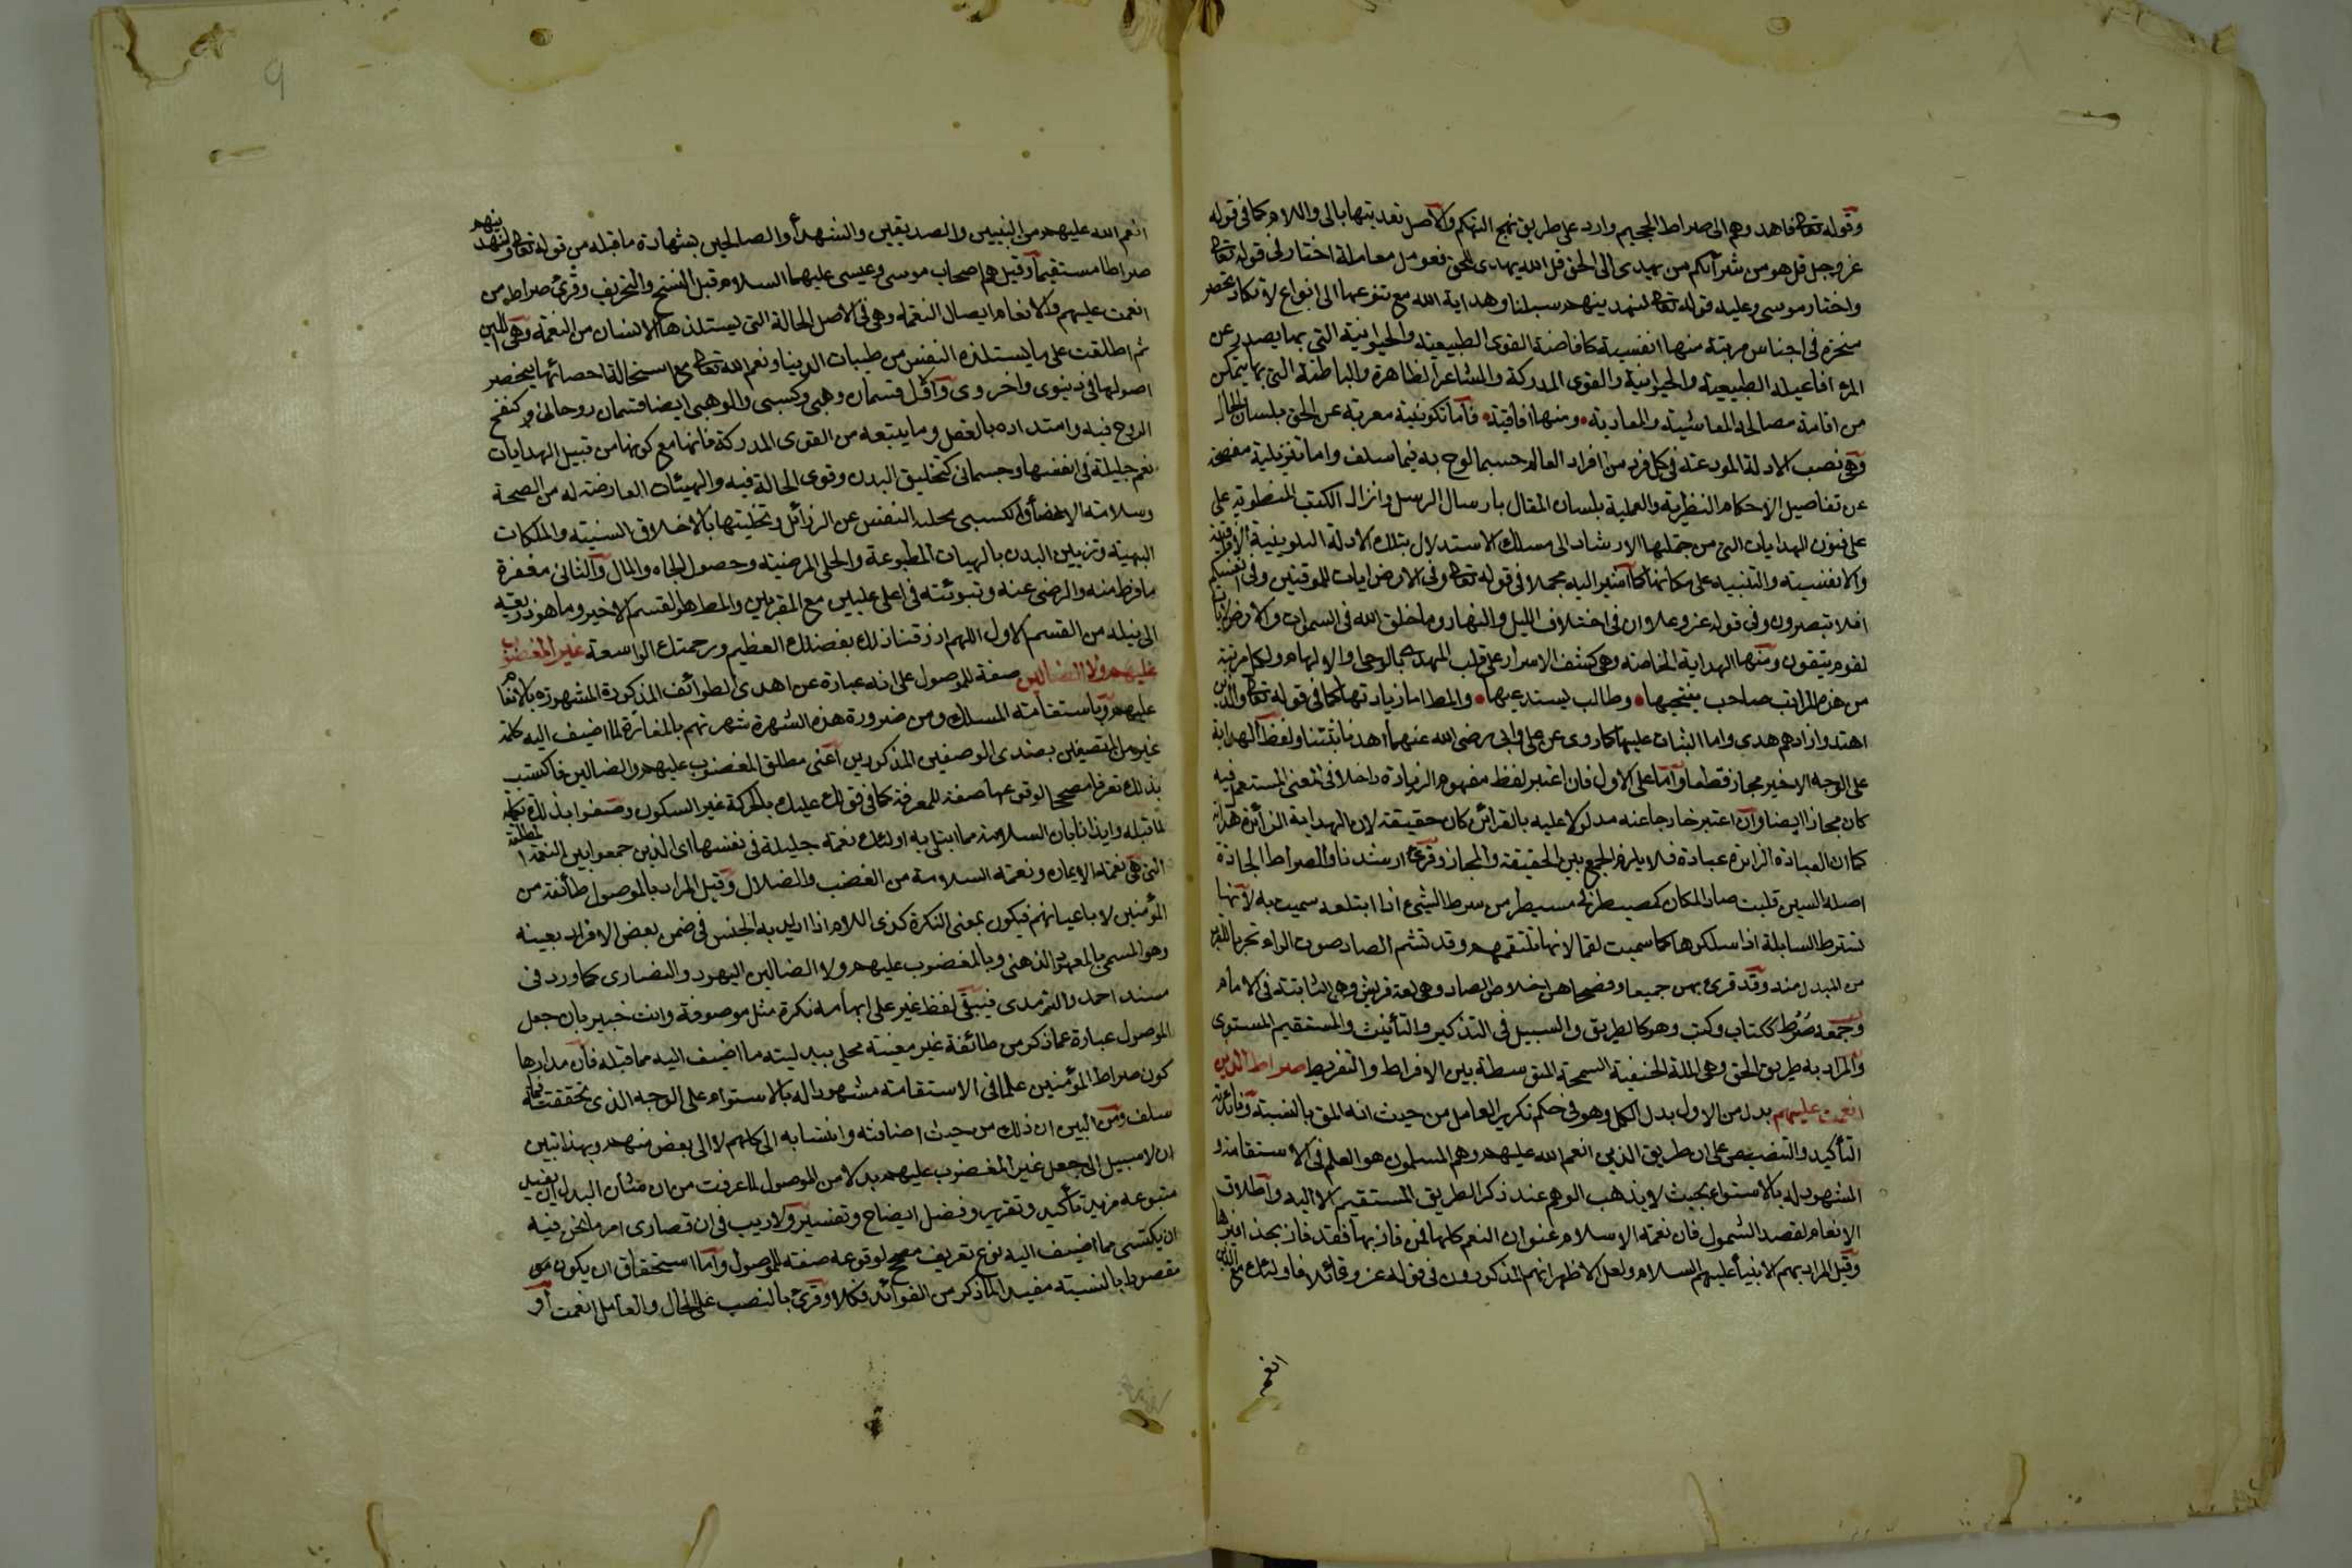 وقوله تعالى فاهدوهم الى صراط الجحيم وارد على طريق نهج التهكم والاصل تعديتها بالى واللام كما فى قوله
عز وجل قل هو من شرائكم من يهدى الى الحق قل الله يهدى للحق فعومل معاملة اختار فى قوله تعالى
واختار موسى وعليه قوله تعالى لنهدينهم سبلنا وهداية الله مع تنوعها الى انواع لا تكاد تحصر
منحصرة فى اجناس مرتبة منها انفسية كافاضة القوى الطبيعية والحيوانية التى بها يصدر عن
المرء افاعيله الطبيعية والحيوانية والقوى المدركة والمشاعر الظاهرة والباطنة التى بها يتمكن
من اقامة مصالحه المعاشية والمعادية ومنها افاقية فاما تكوينية معربة عن الحق بلسان الحال
وهى نصب الادلة المودعة فى كل فرد من افراد العالم حسبما لوح به فيما سلف واما تنزيلية مفصحة
عن تفاصيل الاحكام النظرية والعملية بلسان المقال بارسال الرسل وانزال الكتب المنطوية على
على فنون الهدايات التى من جملتها الارشاد الى مسلك الاستدلال بتلك الادلة التكوينية الافاقية
والانفسية والتنبيه على مكانها كما اشير اليه مجملا فى قوله تعالى وفى الارض ايات للموقنين وفى انفسكم
افلا تبصرون وفى قوله عز وعلا ان فى اختلاف الليل والنهار وما خلق الله فى السموات والارض لايات
لقوم يتقون ومنها الهداية الخاصة وهى كشف الاسرار على قلب المهدى بالوحى والالهام ولكل مرتبة
من هذه المراتب صاحب ينتحيها وطالب يستدعيها والمطلوب اما زيادتها كما فى قوله تعالى والذين
اهتدوا زادهم هدى واما الثبات عليها كما روى عن على وابى رضى الله عنهما اهدنا ثبتنا ولفظ الهداية
على الوجه الاخير مجاز قطعا واما على الاول فان اعتبر لفظ مفهوم الزيادة داخلا فى المعنى المستعمل فيه
كان مجازا ايضا وان اعتبر خارجا عنه مدلولا عليه بالقرائن كان حقيقة لان الهداية الزائدة هداية
كما ان العبادة الزائدة عبادة فلا يلزم الجمع بين الحقيقة والمجاز وقرئ ارشدنا والصراط الجادة
اصله السين قلبت صادا لمكان كمصيطر فى مسيطر من سرط الشىء اذا ابتلعه سميت به لانها
تسترط السابلة اذا سلكوها كما سميت لقما لانها تلتقمهم وقد تشم الصاد صوت الزاء تحريا للقرب
من المبدل منه وقد قرئ بهن جميعا وفصحاهن اخلاص الصاد وهى لغة قريش وهى الثابتة فى الامام
وجمعه صرط ككتاب وكتب وهو كالطريق والسبيل فى التذكير والتأنيث والمستقيم المستوى
والمراد به طريق الحق وهى الملة الحنيفية السمحة المتوسطة بين الافراط والتفريط صراط الذين
انعمت عليهم بدل من الاول بدل الكل وهو فى حكم تكرير العامل من حيث انه المق بالنسبة وفائدته
التأكيد والتنصيص على ان طريق الذين انعم الله عليهم وهم المسلمون هو العلم فى الاستقامة و
المشهود له بالاستواء بحيث لا يذهب الوهم عند ذكر الطريق المستقيم الا اليه واطلاق
الانعام لقصد الشمول فان نعمة الاسلام عنوان النعم كلها فمن فاز بها فقد فاز بحذافيرها
وقيل المراد بهم الانبياء عليهم السلام ولعل الاظهر انهم المذكورون فى قوله عز قائلا فاولئك مع الذين
انعم
انعم الله عليهم من النبيين والصديقين والشهداء والصالحين بشهادة ما قبله من قوله تعالى ولهديناهم
صراطا مستقيما وقيل هم اصحاب موسى وعيسى عليهما السلام قبل النسخ والتحريف وقرئ صراط من
انعمت عليهم والانعام ايصال النعمة وهى فى الاصل الحالة التى يستلذها الانسان من النعمة وهى اللين
ثم اطلقت على ما يستلذه النفس من طيبات الدنيا ونعم الله تعالى مع استحالة احصائها ينحصر
اصولها فى دنيوى واخروى والاول قسمان وهبى وكسبى والوهبى ايضا قسمان روحانى كنفخ
الروح فيه وامداده بالعقل وما يتبعه من القوى المدركة فانها مع كونها من قبيل الهدايات
نعم جليلة فى انفسها وجسمانى كتخليق البدن وقوى الحالة فيه والهيئات العارضة له من الصحة
وسلامة الاعضاء والكسبى تحلية النفس عن الرذائل وتحليتها بالاخلاق السنية والملكات
البهية وتزيين البدن بالهيات المطبوعة والحلى المرضية وحصول الجاه والمال والثانى مغفرة
ما فرط منه والرضى عنه وتبوئته فى اعلى عليين مع المقربين والمطلوب هو القسم الاخير وما هو ذريعة
الى نيله من القسم الاول اللهم ارزقنا ذلك بفضلك العظيم ورحمتك الواسعة غير المغضوب
عليهم ولا الضالين صفة للموصول على انه عبارة عن احدى الطوائف المذكورة المشهورة بالانعام
عليهم وباستقامة المسلك ومن ضرورة هذه الشهرة شهرتهم بالمغايرة لما اضيف اليه كلمة
غير من المتصفين بضدى الوصفين المذكورين اعنى مطلق المغضوب عليهم والضالين فاكتسب
بذلك تعرفا مصححا لوقوعها صفة للمعرفة كما فى قولك عليك بالحركة غير السكون وصفوا بذلك تكملة
لما قبله وايذانا بان السلامة مما ابتلى به اولئك نعمة جليلة فى نفسها اى الذين جمعوا بين النعمة المطلقة
التى هى نعمة الايمان ونعمة السلامة من الغضب والضلال وقيل المراد بالموصول طائفة من
المؤمنين لا باعيانهم فيكون بمعنى النكرة كذى اللام اذا اريد به الجنس فى ضمن بعض الافراد بعينه
وهو المسمى بالمعهود الذهنى وبالمغضوب عليهم ولا الضالين اليهود والنصارى كما ورد فى
مسند احمد والترمذى فيبقى لفظ غير على ابهامه نكرة مثل موصوفه وانت خبير بان جعل
الموصول عبارة عما ذكر من طائفة غير معينة مخل ببدلية ما اضيف اليه مما قبله فان مدارها
كون صراط المؤمنين علما فى الاستقامة مشهودا له بالاستواء على الوجه الذى تحققته فيما
سلف ومن البين ان ذلك من حيث اضافته وانتسابه الى كلهم لا الى بعض منهم وبهذا تبين
ان لا سبيل الى جعل غير المغضوب عليهم بدلا من الموصول لما عرفت من ان شأن البدل ان يفيد
متبوعه مزيد تأكيد وتقرير وفضل ايضاح وتفسير ولا ريب فى ان قصارى امر ما نحن فيه
ان يكتسى مما اضيف اليه نوع تعريف مصحح لوقوعه صفة للموصول واما استحقاق ان يكون هو
مقصودا بالنسبة مفيدا لما ذكر من الفوائد فكلا وقرئ بالنصب على الحال والعامل انعمت او
9